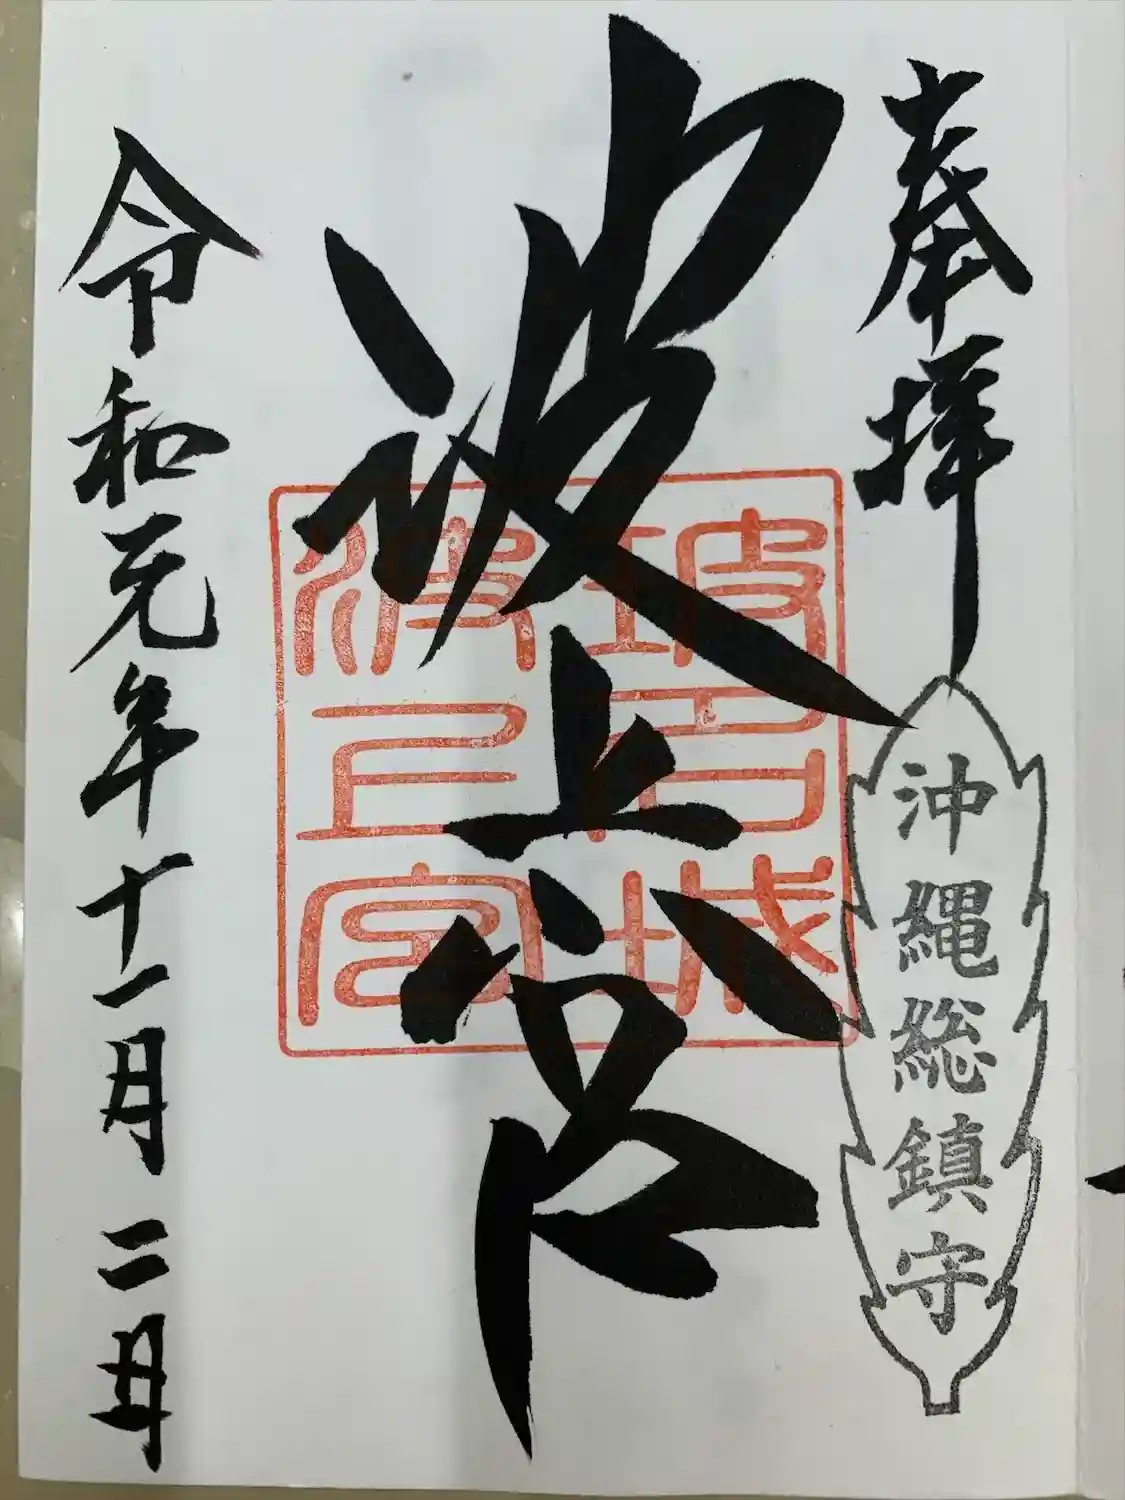 奉拝
沖縄総鎮守
波上宮
琉球
古
城
波上宮
令和元年十一月二日